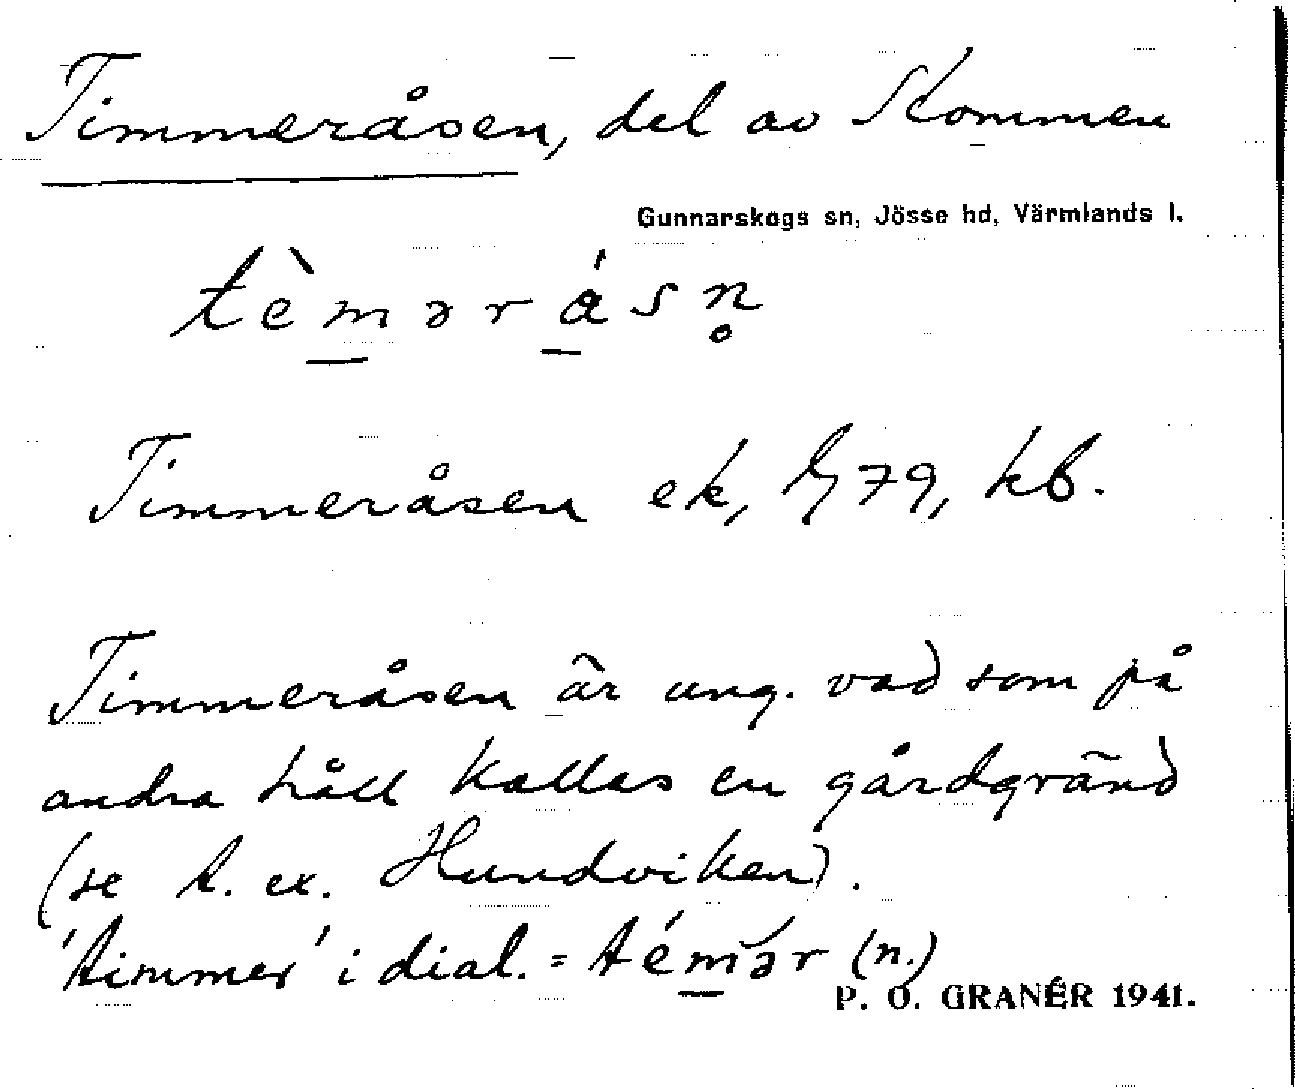 Timmeråsen, del av Kommen
Gunnarskogs sn, Jösse hd, Värmlands l.
tèmərásn̥
Timmeråsen ek, 79, kb.
Timmeråsen är ung. vad som på
andra håll kallas en gårdgränd
(se t. ex. Hundviken).
'timmer' i dial. = témər (n.)
P. O. GRANÉR 1941.